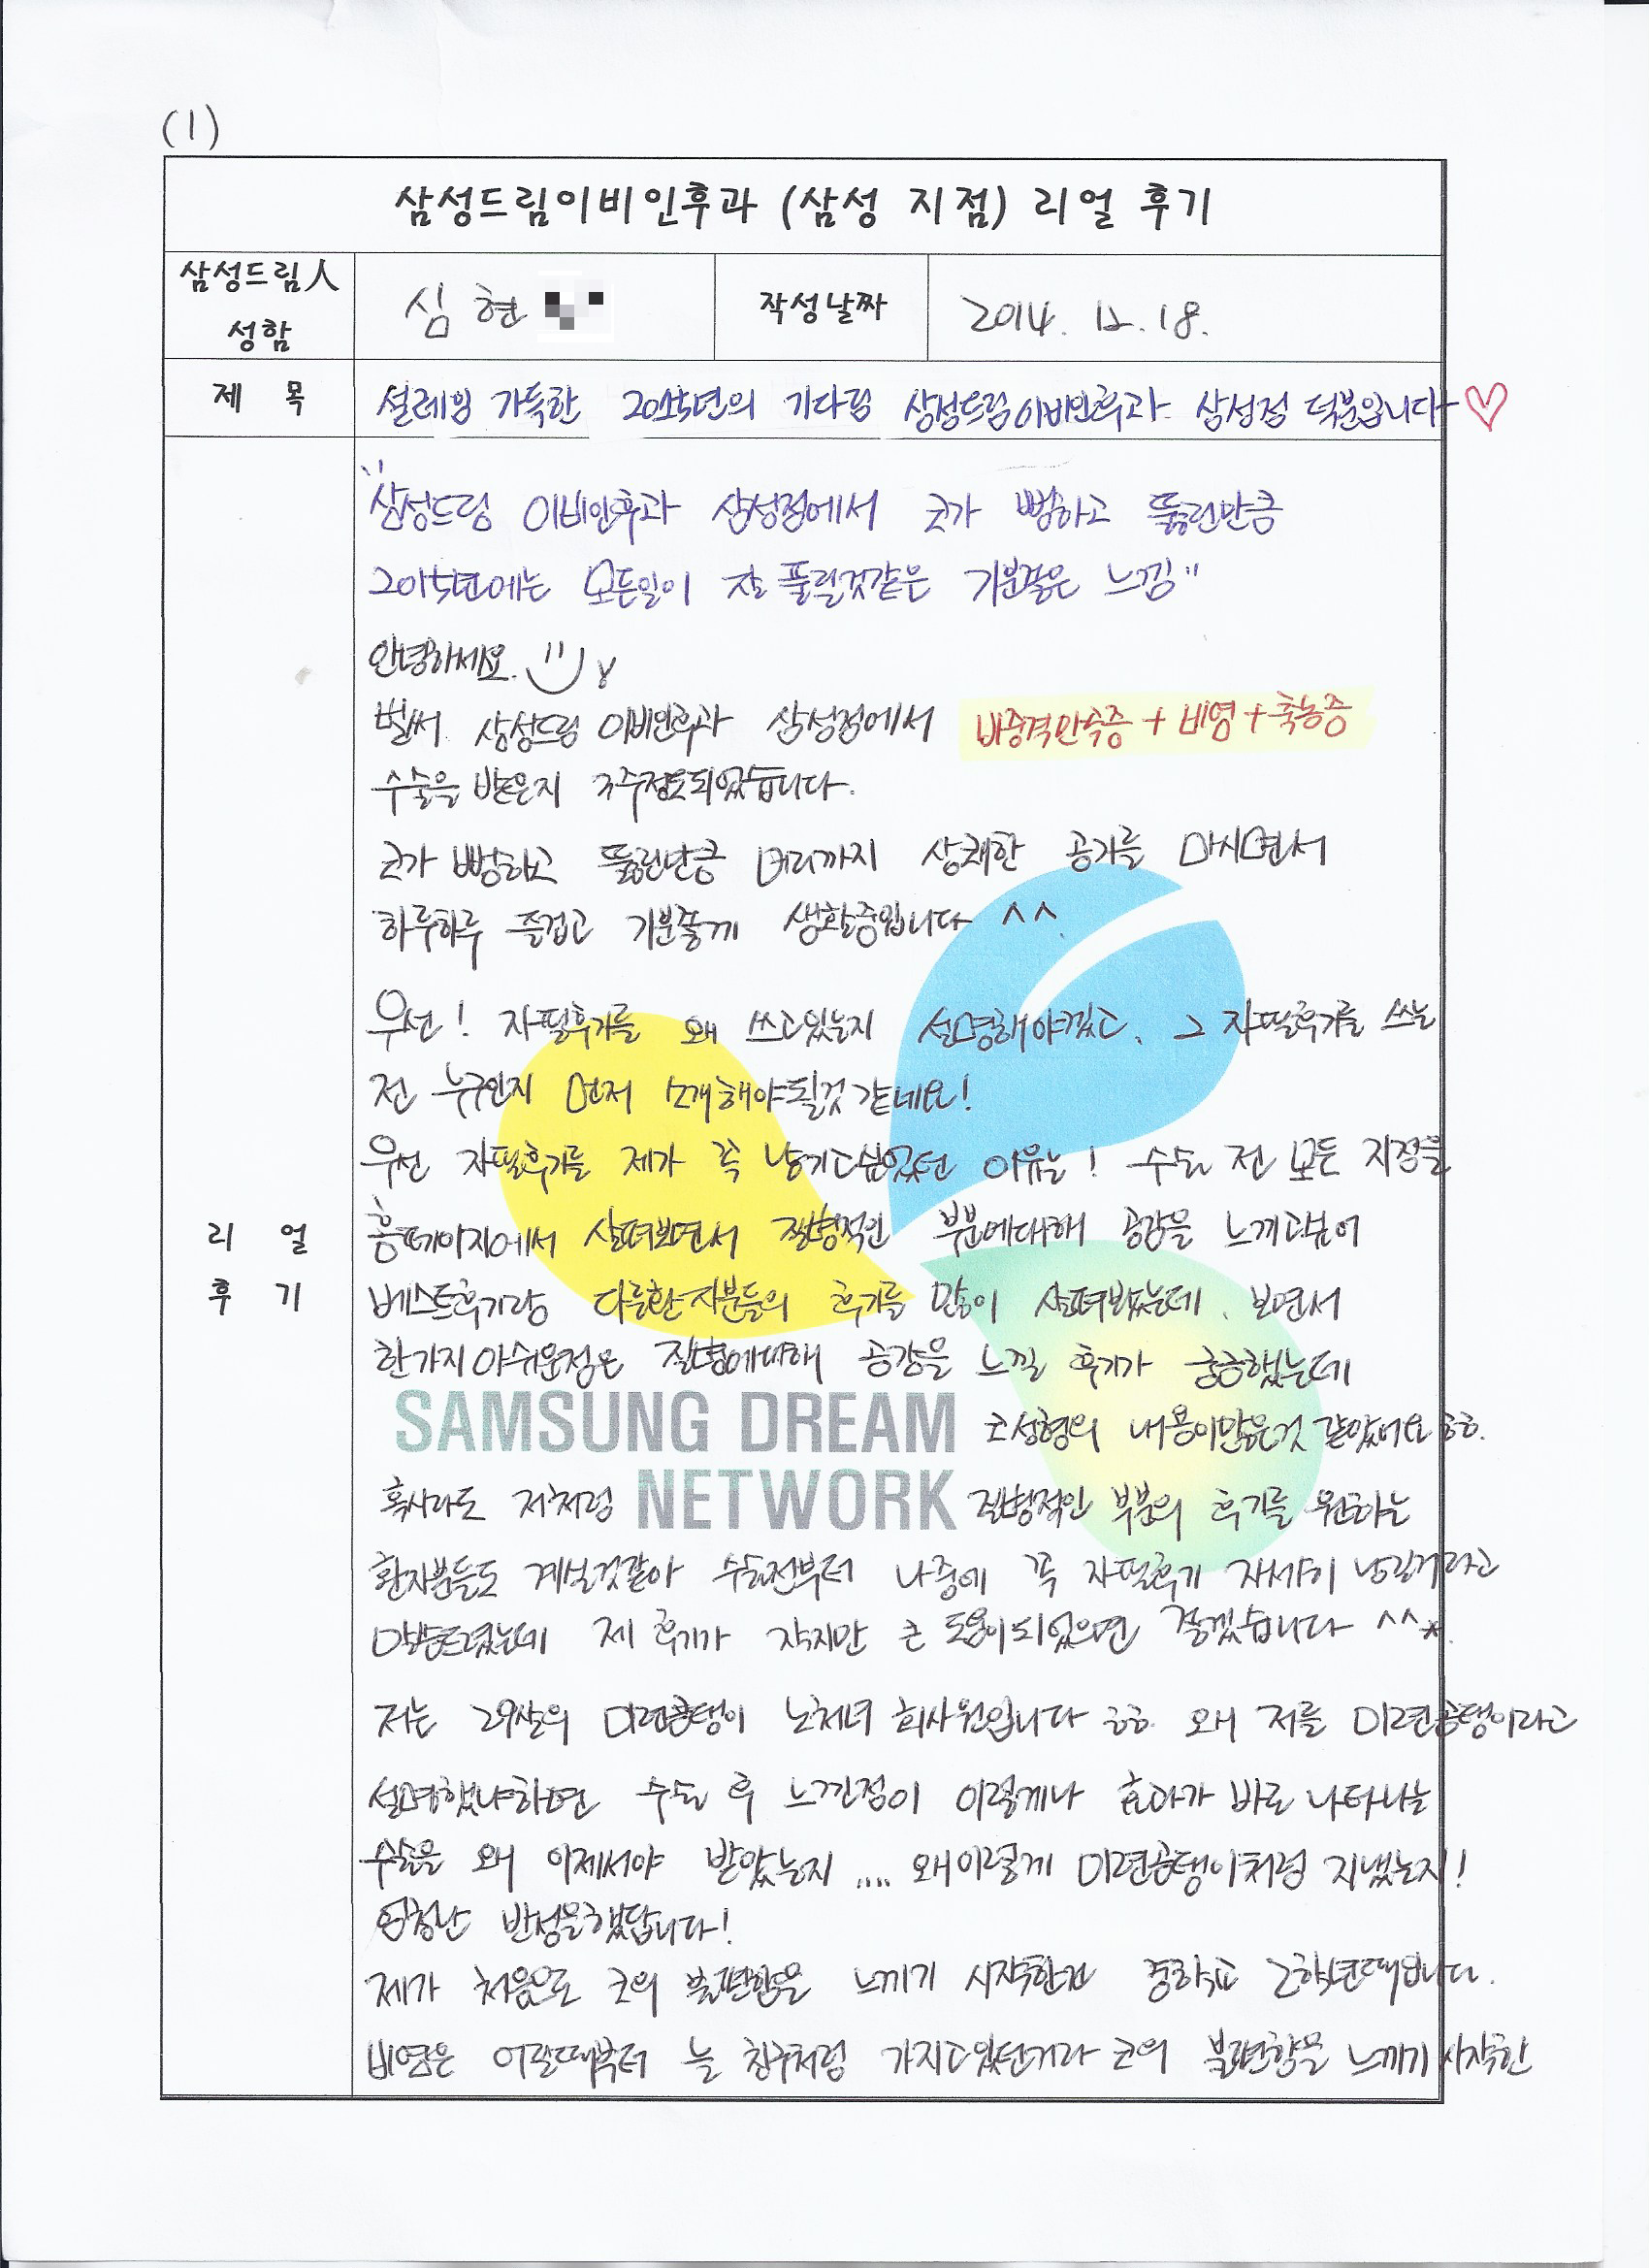 (1)
삼성드림이비인후과 (삼성 지점) 리얼 후기
삼성드림人
성함
심현
작성날짜
2014. 12. 18.
제 목
설레임 가득한 2015년의 기다림 삼성드림이비인후과 삼성점 덕분입니다♡
"삼성드림 이비인후과 삼성점에서 코가 뻥하고 뚫린만큼
2015년에는 모든일이 잘 풀릴것같은 기분좋은 느낌"
안녕하세요.
벌써 삼성드림 이비인후과 삼성점에서 비중격만곡증 + 비염 + 축농증
수술을 받은지 3주정도되었습니다.
코가 뻥하고 뚫린만큼 머리까지 상쾌한 공기를 마시면서
하루하루 즐겁고 기분좋게 생활중입니다 ^^
우선! 자필후기를 왜 쓰고있는지 설명해야겠고, 그 자필후기를 쓰는
전 누구인지 먼저 소개해야될것 같네요!
우선 자필후기를 제가 꼭 남기고싶었던 이유는! 수술 전 모든 지점을
홈페이지에서 살펴보면서 질병적인 부분에대해 공감을 느끼고싶어
베스트후기랑 다른환자분들의 후기를 많이 살펴봤는데, 보면서
한가지 아쉬운점은 질병에대해 공감을 느낄 후기가 궁금했는데
코성형의 내용이많은것 같았어요 ㅎㅎ.
SAMSUNG DREAM
NETWORK
혹시라도 저처럼 질병적인 부분의 후기를 원하는
환자분들도 계실것같아 수술전부터 나중에 꼭 자필후기 자세히 남길거라고
말씀드렸는데 제 후기가 작지만 큰 도움이되었으면 좋겠습니다 ^^*.
저는 29살의 미련곰탱이 노처녀 회사원입니다 ㅎㅎ. 왜 저를 미련곰탱이라고
설명했냐하면 수술 후 느낀점이 이렇게나 효과가 바로 나타나는
수술을 왜 이제서야 받았는지 .... 왜이렇게 미련곰탱이처럼 지냈는지!
엄청난 반성을했답니다!
리 얼
후 기
제가 처음으로 코의 불편함을 느끼기 시작한건 중학교 2학년때입니다.
비염은 어릴때부터 늘 친구처럼 가지고있었던거라 코의 불편함을 느끼기 시작한